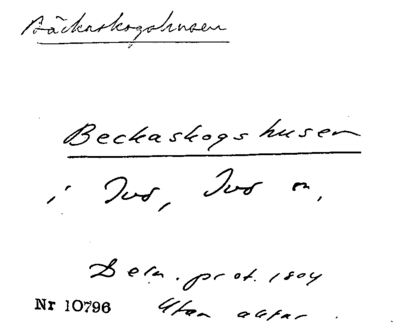 Bäckaskogshusen
Beckaskogshusen
i Ivö, Ivö sn,
Beln. prot. 1804
Nr 10796 Utan aktnr.